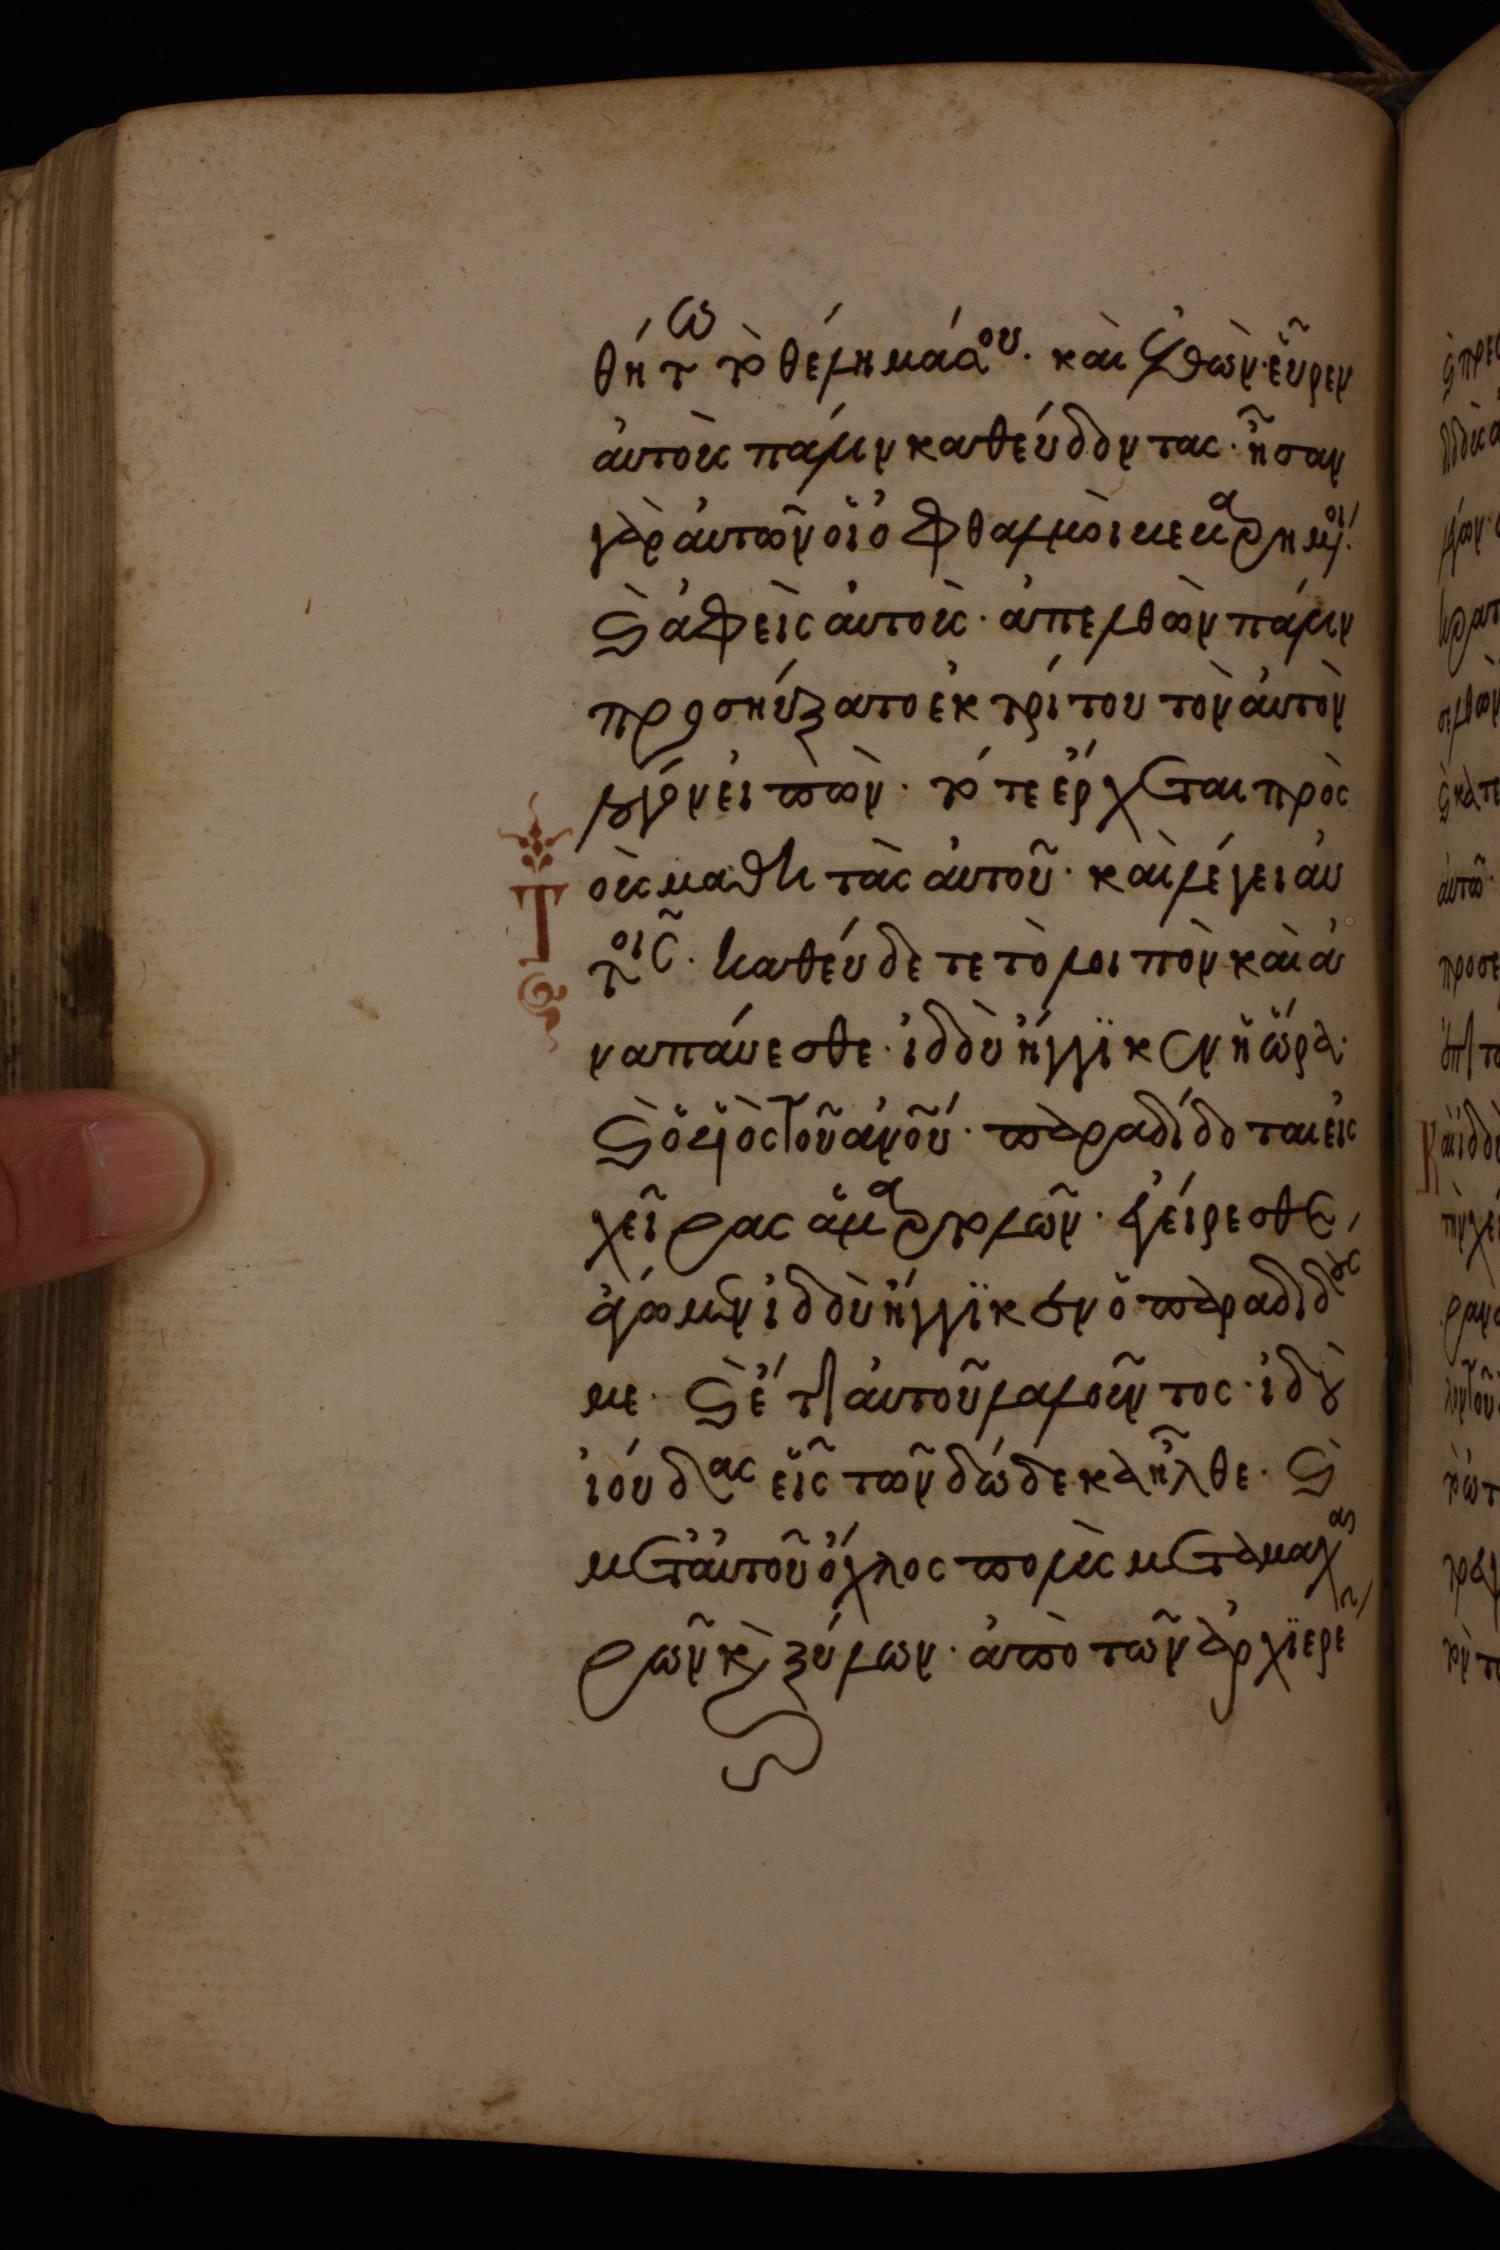 θήτω τὸ θέλημά σου. καὶ ἐλθὼν· εὗρεν
αὐτοὺς πάλιν καθεύδοντας· ἦσαν
γὰρ αὐτῶν οἱ ὀφθαλμοὶ βεβαρημένοι.
καὶ ἀφεὶς αὐτοὺς· ἀπελθὼν πάλιν
προσηύξατο ἐκ τρίτου τὸν αὐτὸν
λόγον εἰπὼν. τότε ἔρχεται πρὸς
τοὺς μαθητὰς αὐτοῦ. καὶ λέγει αὐ
τοῖς. καθεύδετε τὸ λοιπὸν καὶ ἀ
ναπάυεσθε. ἰδοὺ ἤγγϊκεν ἡ ὥρα.
καὶ ὁ υἱὸς τοῦ ἀνου. παραδίδοται εἰς
χεῖρας ἁμαρτωλῶν. ἐγείρεσθε,
ἄγωμεν ἰδοὺ ἤγγϊκεν ὁ παραδιδούς
με. καὶ ἔτι αὐτοῦ λαλοῦντος. ἰδοὺ
ἰούδας εἷς τῶν δώδεκα ἦλθε. καὶ
μετ' αὐτοῦ ὄχλος πολὺς μετὰ μαχαι
ρῶν καὶ ξύλων. ἀπὸ τῶν ἀρχϊερέ